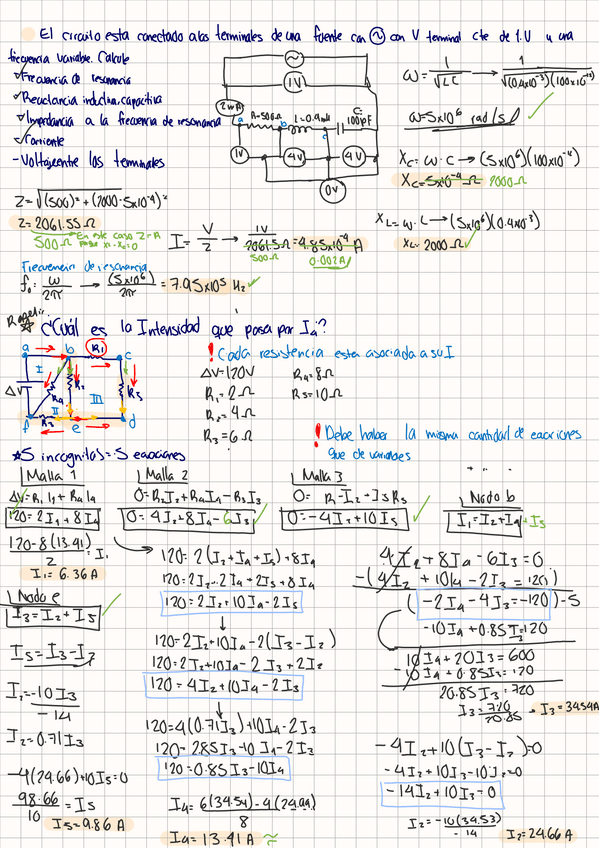 El circuito esta conectado a los terminales de una fuente con ~ con V terminal cte de 1.U y una
frecuencia variable. Calcule
✓Frecuencia de resonancia
✓Reactancia inductiva, capacitiva
✓Impedancia a la frecuencia de resonancia
✓Corriente
-Voltajes entre los terminales
~
1V
2mA
a R=500Ω b L=0.4mH c C=100pF
1V 4V 4V
0V
ω = 1/√LC → 1/√(0.4x10⁻³)(100x10⁻¹²)
ω=5x10⁶ rad/s ✓
Xc= ω·C → (5x10⁶)(100x10⁻¹²)
Xc=5x10⁻⁴ Ω 2000Ω
XL= ω·L → (5x10⁶)(0.4x10⁻³)
XL= 2000Ω ✓
Z=√(500)²+(2000-5x10⁻⁴)²
Z=2061.55Ω
500Ω En este caso Z=R
I= V/Z → 1V/2061.5Ω = 4.85x10⁻⁴ A
500Ω 0.002A
Frecuencia de resonancia
f₀= ω/2π → (5x10⁶)/2π = 7.95x10⁵ Hz ✓
☆ ¿Cuál es la Intensidad que pasa por I₄?
a b R₁ c
I R₂ R₅
ΔV R₄ III
II
f R₃ e d
! Cada resistencia esta asociada a su I
ΔV=120V R₄=8Ω
R₁=2Ω R₅=10Ω
R₂=4Ω
R₃=6Ω
! Debe haber la misma cantidad de eacriones
que de variables
☆5 incognitas=5 eauciones
Malla 1
ΔV=R₁I₁+R₄I₄
120=2I₁+8I₄
120-8(13.41)/2 = I₁
I₁=6.36A
Nodo e
I₃=I₂+I₅ ✓
I₅=I₃-I₂
I₂=-10I₃/-14
I₂=0.71I₃
-4(24.66)+10I₅=0
98.66/10=I₅
I₅=9.86A
Malla 2
0=R₂I₂+R₄I₄-R₃I₃
0=4I₂+8I₄-6I₃ ✓
120=2(I₂+I₄+I₅)+8I₄
120=2I₂-2I₄+2I₅+8I₄
120=2I₂+10I₄-2I₅
120=2I₂+10I₄-2(I₃-I₂)
120=2I₂+10I₄-2I₃+2I₂
120=4I₂+10I₄-2I₃
120=4(0.71I₃)+10I₄-2I₃
120=2.85I₃+10I₄-2I₃
120=0.85I₃-10I₄
I₄=6(34.54)-4(24.99)/8
I₄=13.41A ≈
Malla 3
0=R₂I₂+I₅R₅
0=-4I₂+10I₅ ✓
Nodo b
I₁=I₂+I₄+I₅
4I₂+8I₄-6I₃=0
-(4I₂+10I₄-2I₃=120)
(-2I₄-4I₃=-120)-5
-10I₄+0.85I₃=120
10I₄+20I₃=600
-10I₄+0.85I₃=120
20.85I₃=720
I₃=720/20.85 = I₃=34.54A
-4I₂+10(I₃-I₂)=0
-4I₂+10I₃-10I₂=0
-14I₂+10I₃=0
I₂=-10(34.53)/-14
I₂=24.66A